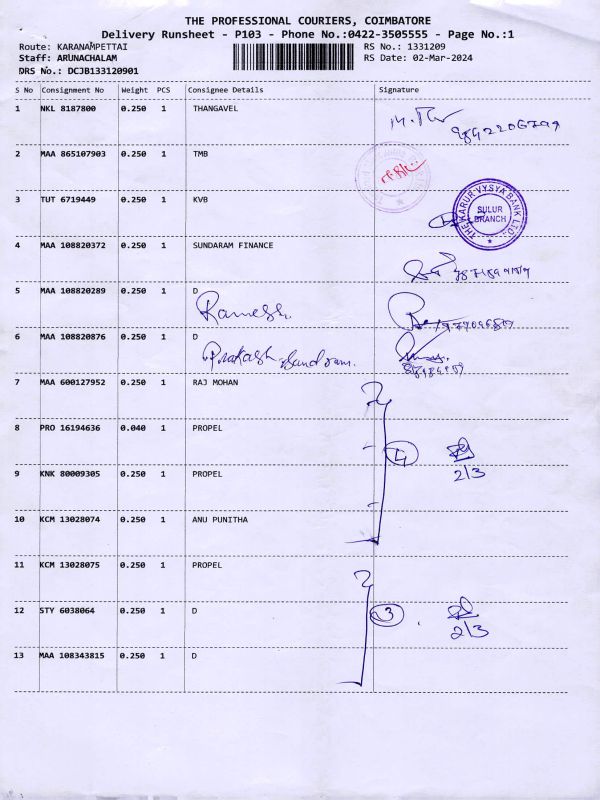 THE PROFESSIONAL COURIERS, COIMBATORE
Delivery Runsheet - P103 - Phone No.:0422-3505555 - Page No.:1
Route: KARANAMPETTAI RS No.: 1331209
Staff: ARUNACHALAM RS Date: 02-Mar-2024
DRS No.: DCJB133120901
S No Consignment No Weight PCS Consignee Details Signature
1 NKL 8187800 0.250 1 THANGAVEL
2 MAA 865107903 0.250 1 TMB
3 TUT 6719449 0.250 1 KVB
THE KARUR VYSYA BANK LTD.,
SULUR
BRANCH
4 MAA 108820372 0.250 1 SUNDARAM FINANCE
5 MAA 108820289 0.250 1 D
Ramesh.
6 MAA 108820876 0.250 1 D
Prakash
7 MAA 600127952 0.250 1 RAJ MOHAN
8 PRO 16194636 0.040 1 PROPEL
4
2/3
9 KNK 80009305 0.250 1 PROPEL
10 KCM 13028074 0.250 1 ANU PUNITHA
11 KCM 13028075 0.250 1 PROPEL
12 STY 6038064 0.250 1 D
3
2/3
13 MAA 108343815 0.250 1 D